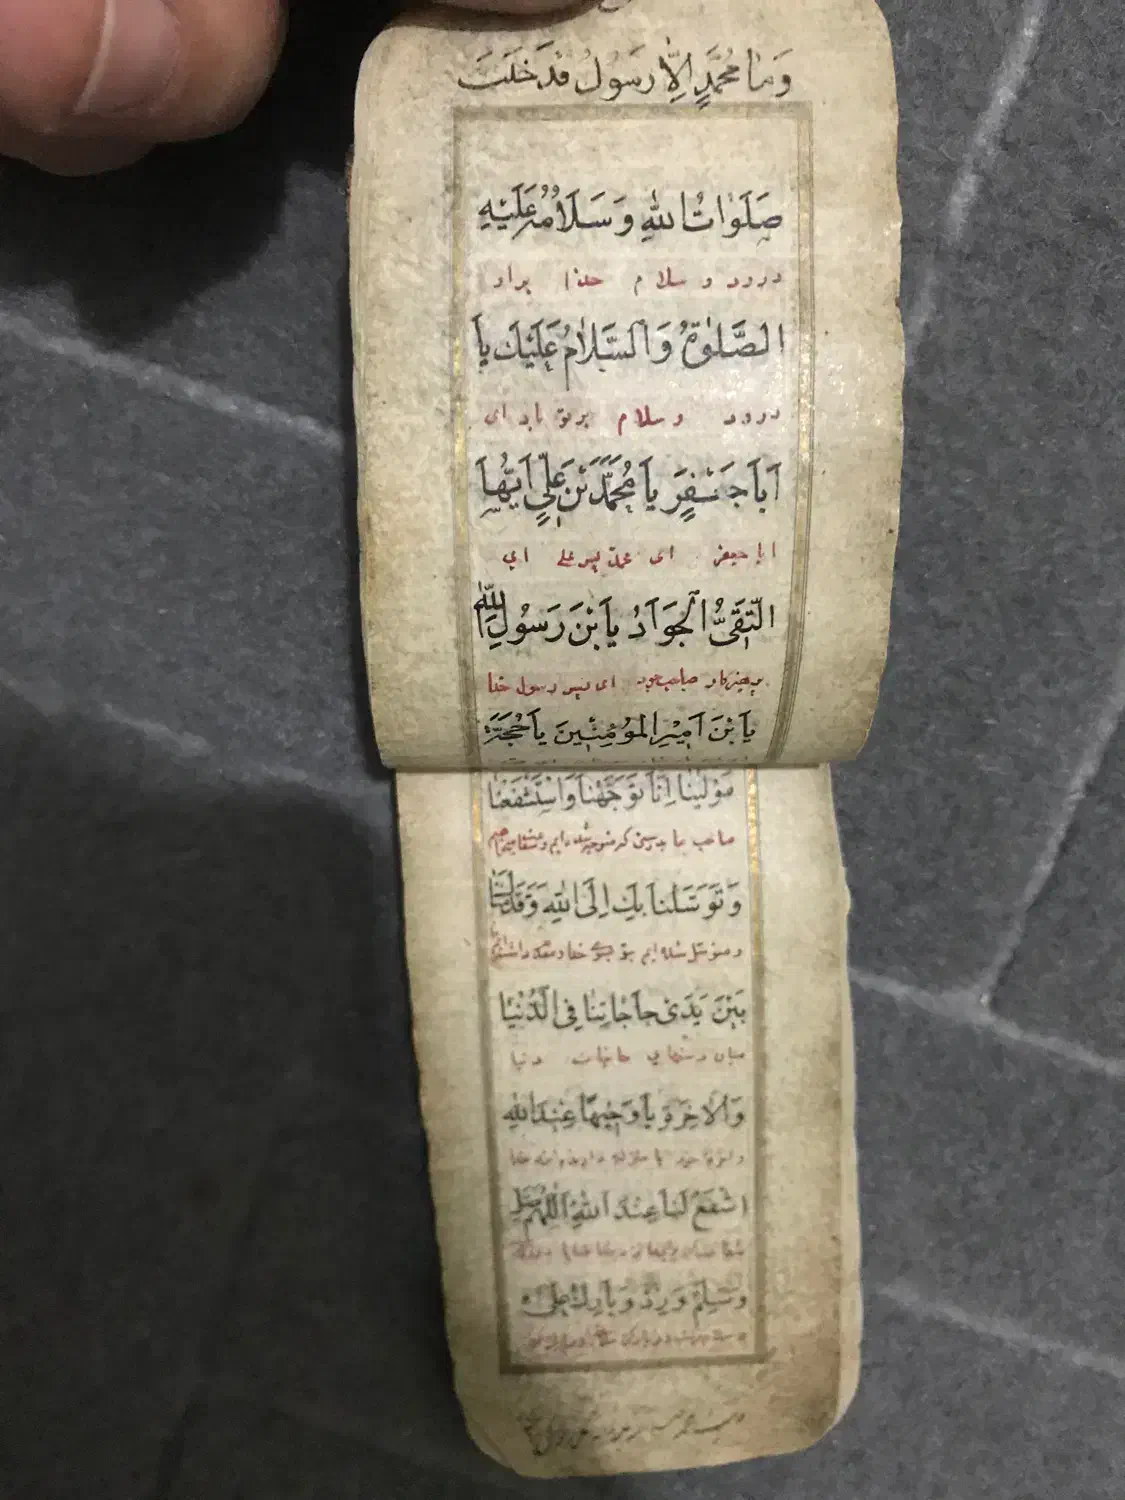 وَمَا مُحَمَّدٍ اِلَّا رَسُولُ قَدْ خَلَتَ
صَلَوَاتُ اللهِ وَسَلَامُهُ عَلَيْهِ
درود و سلام خدا براو
اَلصَّلٰوةُ وَالسَّلَامُ عَلَيْكَ يَا
درود و سلام برتو باد ای
اَبَا جَعْفَرٍ يَا مُحَمَّدَ بْنَ عَلِيٍّ اَيُّهَا
ابا جعفر ای محمد پسر علی ای
التَّقِىُّ الْجَوَادُ يَا بْنَ رَسُولِ اللهِ
پرهیزکار صاحب جود ای پسر رسول خدا
يَا بْنَ اَمِيْرِ الْمُؤْمِنِيْنَ يَا حُجَّةَ
مَوْلَيْنَا اِنَّا تَوَجَّهْنَا وَاسْتَشْفَعْنَا
صاحب ما بدرستی که متوجه شده ایم و
وَتَوَسَّلْنَا بِكَ اِلَى اللهِ وَقَدَّمْنَاكَ
و متوسل شده ایم بتو بسوی خدا و مقدم
بَيْنَ يَدَىْ حَاجَاتِنَا فِى الدُّنْيَا
میان دستهای حاجات دنیا
وَالْاٰخِرَةِ يَا وَجِيْهًا عِنْدَ اللهِ
اِشْفَعْ لَنَا عِنْدَ اللهِ اَللّٰهُمَّ صَلِّ
وَسَلِّمْ وَزِدْ وَبَارِكْ عَلٰى